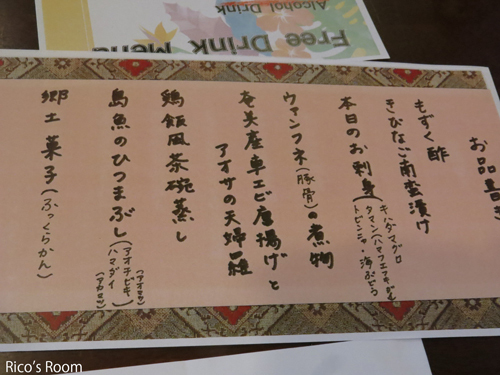 Alcohol Drink
Free Drink Menu
お品書き
もずく酢
きびなご南蛮漬け
本日のお刺身
キハダマグロ
タマン(ハマフエフキダイ)
トビンニャ・海ぶどう
ウァンフネ(豚骨)の煮物
奄美産車エビ唐揚げと
アオサの天婦羅
鶏飯風茶碗蒸し
島魚のひつまぶし
(アオチビキ)
(アオマツ)
ハマダイ
(アカマツ)
郷土菓子(ふっくらかん)
Rico's Room